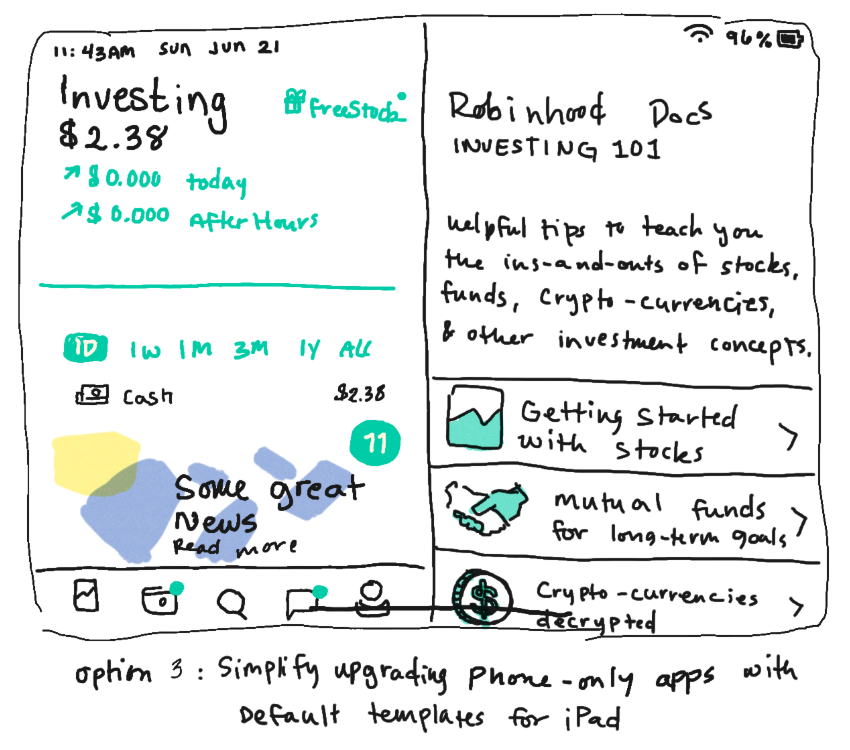 11:43AM Sun Jun 21
96%
Investing
$2.38
freeStock
↗$0.000 today
↗$0.000 After Hours
1D 1W 1M 3M 1Y ALL
Cash $2.38
11
Some great
News
Read more
Robinhood Docs
INVESTING 101
Helpful tips to teach you
the ins-and-outs of stocks,
funds, Crypto-currencies,
& other investment concepts.
Getting started
with stocks
Mutual funds
for long-term goals
$
Crypto-currencies
decrypted
option 3: Simplify upgrading Phone-only apps with
Default templates for iPad